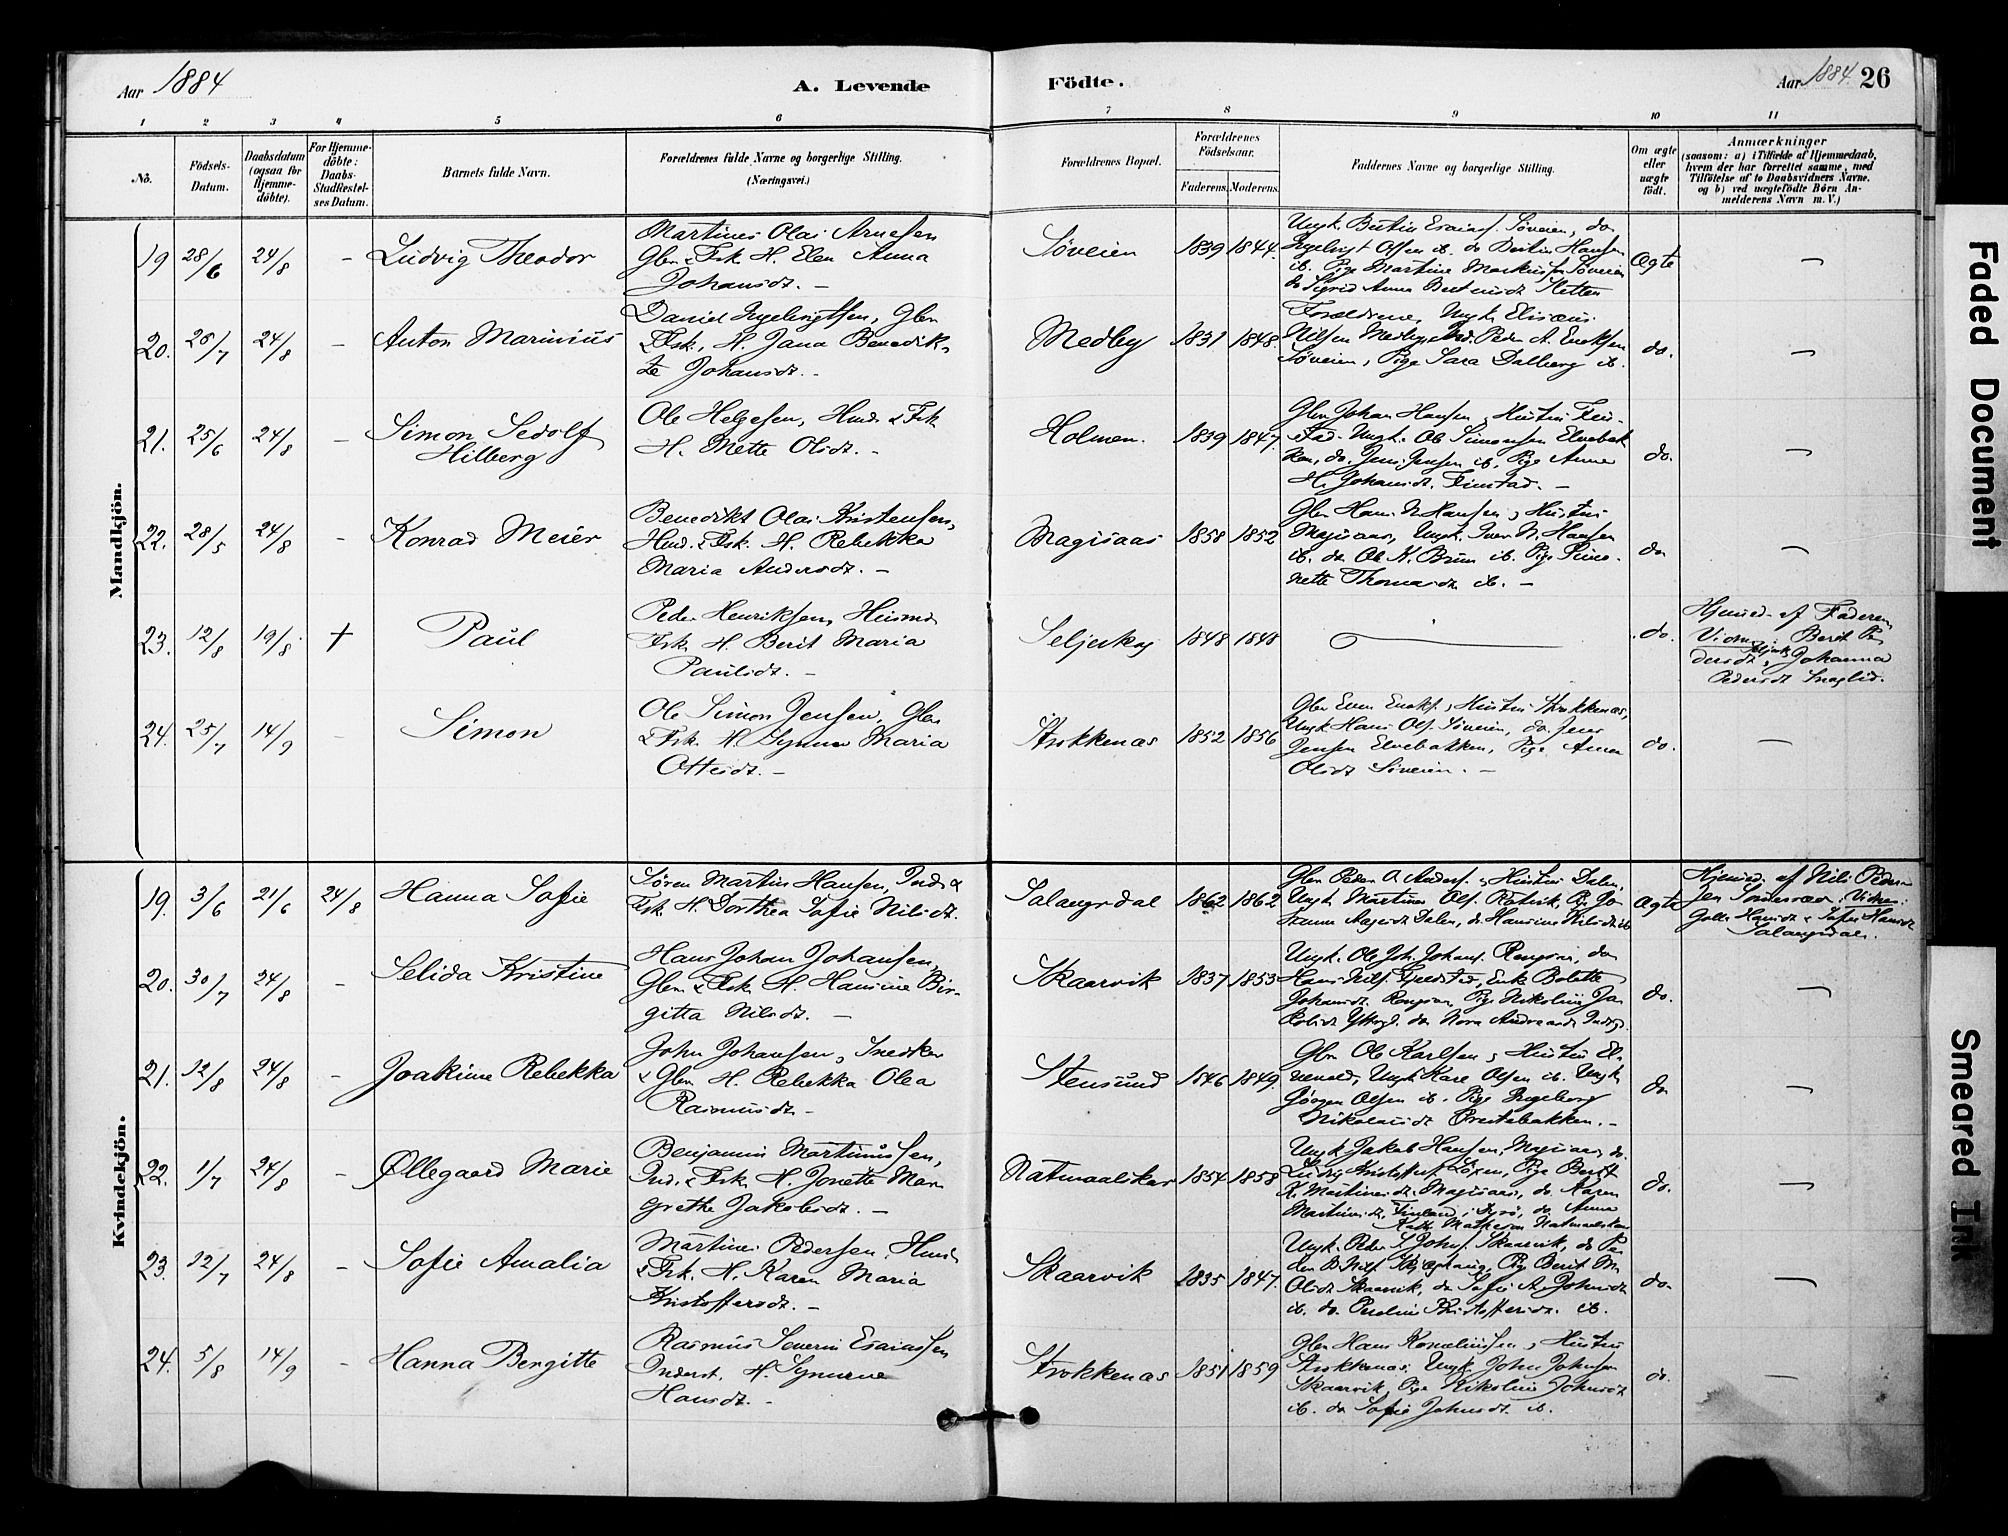 Aar 1884
A. Levende
Födte.
Aar 1884. 26
1 2 3 4 5 6 7 8 9 10 11
No.
Födsels-
Datum.
Daabsdatum
(ogsaa for
Hjemme-
döbte).
For Hjemme-
döbte:
Daabs-
Stadfæstel-
ses Datum.
Barnets fulde Navn.
Forældrenes fulde Navne og borgerlige Stilling.
(Næringsvei.)
Forældrenes Bopæl.
Forældrenes
Födselsaar.
Faderens. Moderens.
Faddernes Navne og borgerlige Stilling.
Om ægte
eller
uægte
født.
Anmærkninger
(saasom: a) i Tilfælde af Hjemmedaab,
hvem der har forrettet samme, med
Tilføielse af to Daabsvidners Navne.
og b) ved uægtefødte Börn An-
melderens Navn m. V.)
Mandkjön.
19 28/6 24/8 - Ludvig Theodor
Martines Olai Arnesen
Gbr. & Fsk. H. Elen Anna
Johansdt. -
Søveien 1839 1844.
Ungk. Bertin Esaias. Søveien, do
Ingebrigt Olsen ib. do Bertin Hansen
ib. Pige Martine Markusd. Søveien
do Sigrid Anna Berteusdt Sletten
Ægte -
20. 26/7 24/8 - Anton Marinius
Daniel Ingebrigtsen, Gbr.
& Fsk., H. Jana Benedik-
te Johansdt. -
Medby 1831 1848.
Forældrene, Ungk. Elisæus
Nilsen Medby, Peder A. Enoksen
Søveien, Pige Sara Dalberg ib.
do. -
21. 25/6 24/8 - Simon Sedolf
Hilberg
Ole Helgesen, Husd. & Fsk
H. Mette Olsdt. -
Holmen. 1839 1847.
Gbr. Johan Hansen & Hustru Fin-
stad. Ungk. Ole Simonsen Elvebak
ken, do. Jens Jensen ib. Pige Anna
H. Johansdt. Finstad. -
do. -
22. 28/5 24/8 - Konrad Meier
Benedikt Olai Kristensen,
Husd. & Fsk. H. Rebekka
Maria Andersdt. -
Magisaas 1858 1852
Gbr. Hans N. Hansen & Hustru
Magisaas, Ungk. Iver N. Hansen
ib. do. Ole K. Brun ib. Pige Simo-
nette Thomasdt. ib. -
do -
23. 12/8 19/8. + Paul
Peder Henriksen, Husmd
Fsk. H. Berit Maria
Paulsdt. -
Seljeskog 1848 1848
do.
Hjemmed. af Faderen
Vidner: Berit Pe
dersdt. & Johanna
Pedersdt
24. 25/7 14/9 - Simon
Ole Simon Jensen, Gbr.
& Fsk. H. Synnøv Maria
Ottesdt. -
Strokkenæs 1852 1856
Gbr. Even Enoks. & Hustru Strokkenæs,
Ungk. Hans Ols. Søveien, do. Jens
Jensen Elvebakken, Pige Anna
Olsdt Søveien. -
do. -
Kvindekjön.
19. 3/6 21/6 24/8 Hanna Sofie
Søren Martin Hansen, Inds. &
Fsk. H. Dorthea Sofie Nilsdt.
Salangsdal 1862 1862
Gbr. Peder A. Anders. & Hustru Dalen,
Ungk. Martinus Ols. Rotvik, Pige Jo-
hanna Aagesdt Dalen, do. Hansine Nilsdt ib
Ægte
Hjemmed. af Nils Peder-
sen Vidner:
Hansdt. & Sofie Hansdt
Salangsdalen.
20. 30/7 24/8 - Selida Kristine
Hans Johan Johansen,
Gbr. & Fsk. H. Hansine Bir-
gitta Nilsdt. -
Skaarvik 1837 1853
Ungk. Ole Joh. Johans. Rengsaa, do
Hans Nils. Fjeldstad, Enke Bolette
Johansdt. Rengsaa, Pige Nikoline Ja
kobsdt do Nora
do. -
21. 12/8 24/8 - Joakime Rebekka
John Johansen, Snedker
& Gbr. H. Rebekka Olea
Rasmusdt. -
Stensund 1846 1849.
Gbr. Ole Karlsen & Hustru El-
nevold, Ungk. Kare Olsen ib. Ungk
Jørgen Olsen ib. Pige Ingeborg
Nikolaisdt -
do -
22. 1/7 24/8 - Øllegaard Marie
Benjamin Martinussen,
Ind. & Fsk. H. Jonette Mar
grethe Jakobsdt. -
Natmaalskar 1854 1858
Ungk. Jakob Hansen, Magisaas, do.
Ludvig Kristoffers. Løxen, Pige Berit
K. Martinesdt. Magisaas, do. Karen
Martinusdt. Finland i Dyrø, do. Anna
Kath. Mathisen Natmaalskar
do. -
23. 12/7 24/8 - Sofie Amalia
Martines Pedersen, Husd
& Fsk. H. Karen Maria
Kristoffersdt. -
Skaarvik 1835 1847.
Ungk. Peder Johns. Skaarvik, do Pe
der B. Nils. Pige Berit M.
Olsdt Skaarvik, do Sofie A. Johnsdt
ib. do. Kristoffersdt. ib.
do. -
24. 5/8 14/9 - Hanna Bergitte
Rasmus Severin Esaiassen
Inderst. H. Synnøve
Hansdt. -
Strokkenæs 1851 1859
Gbr. Hans Kornelinssen & Hustru
Strokkenæs, Ungk. John Johnsen
Skaarvik, Pige Nikoline Johnsdt
ib. do Sofie Johnsdt. ib.
do. -
Faded Document
Smeared Ink